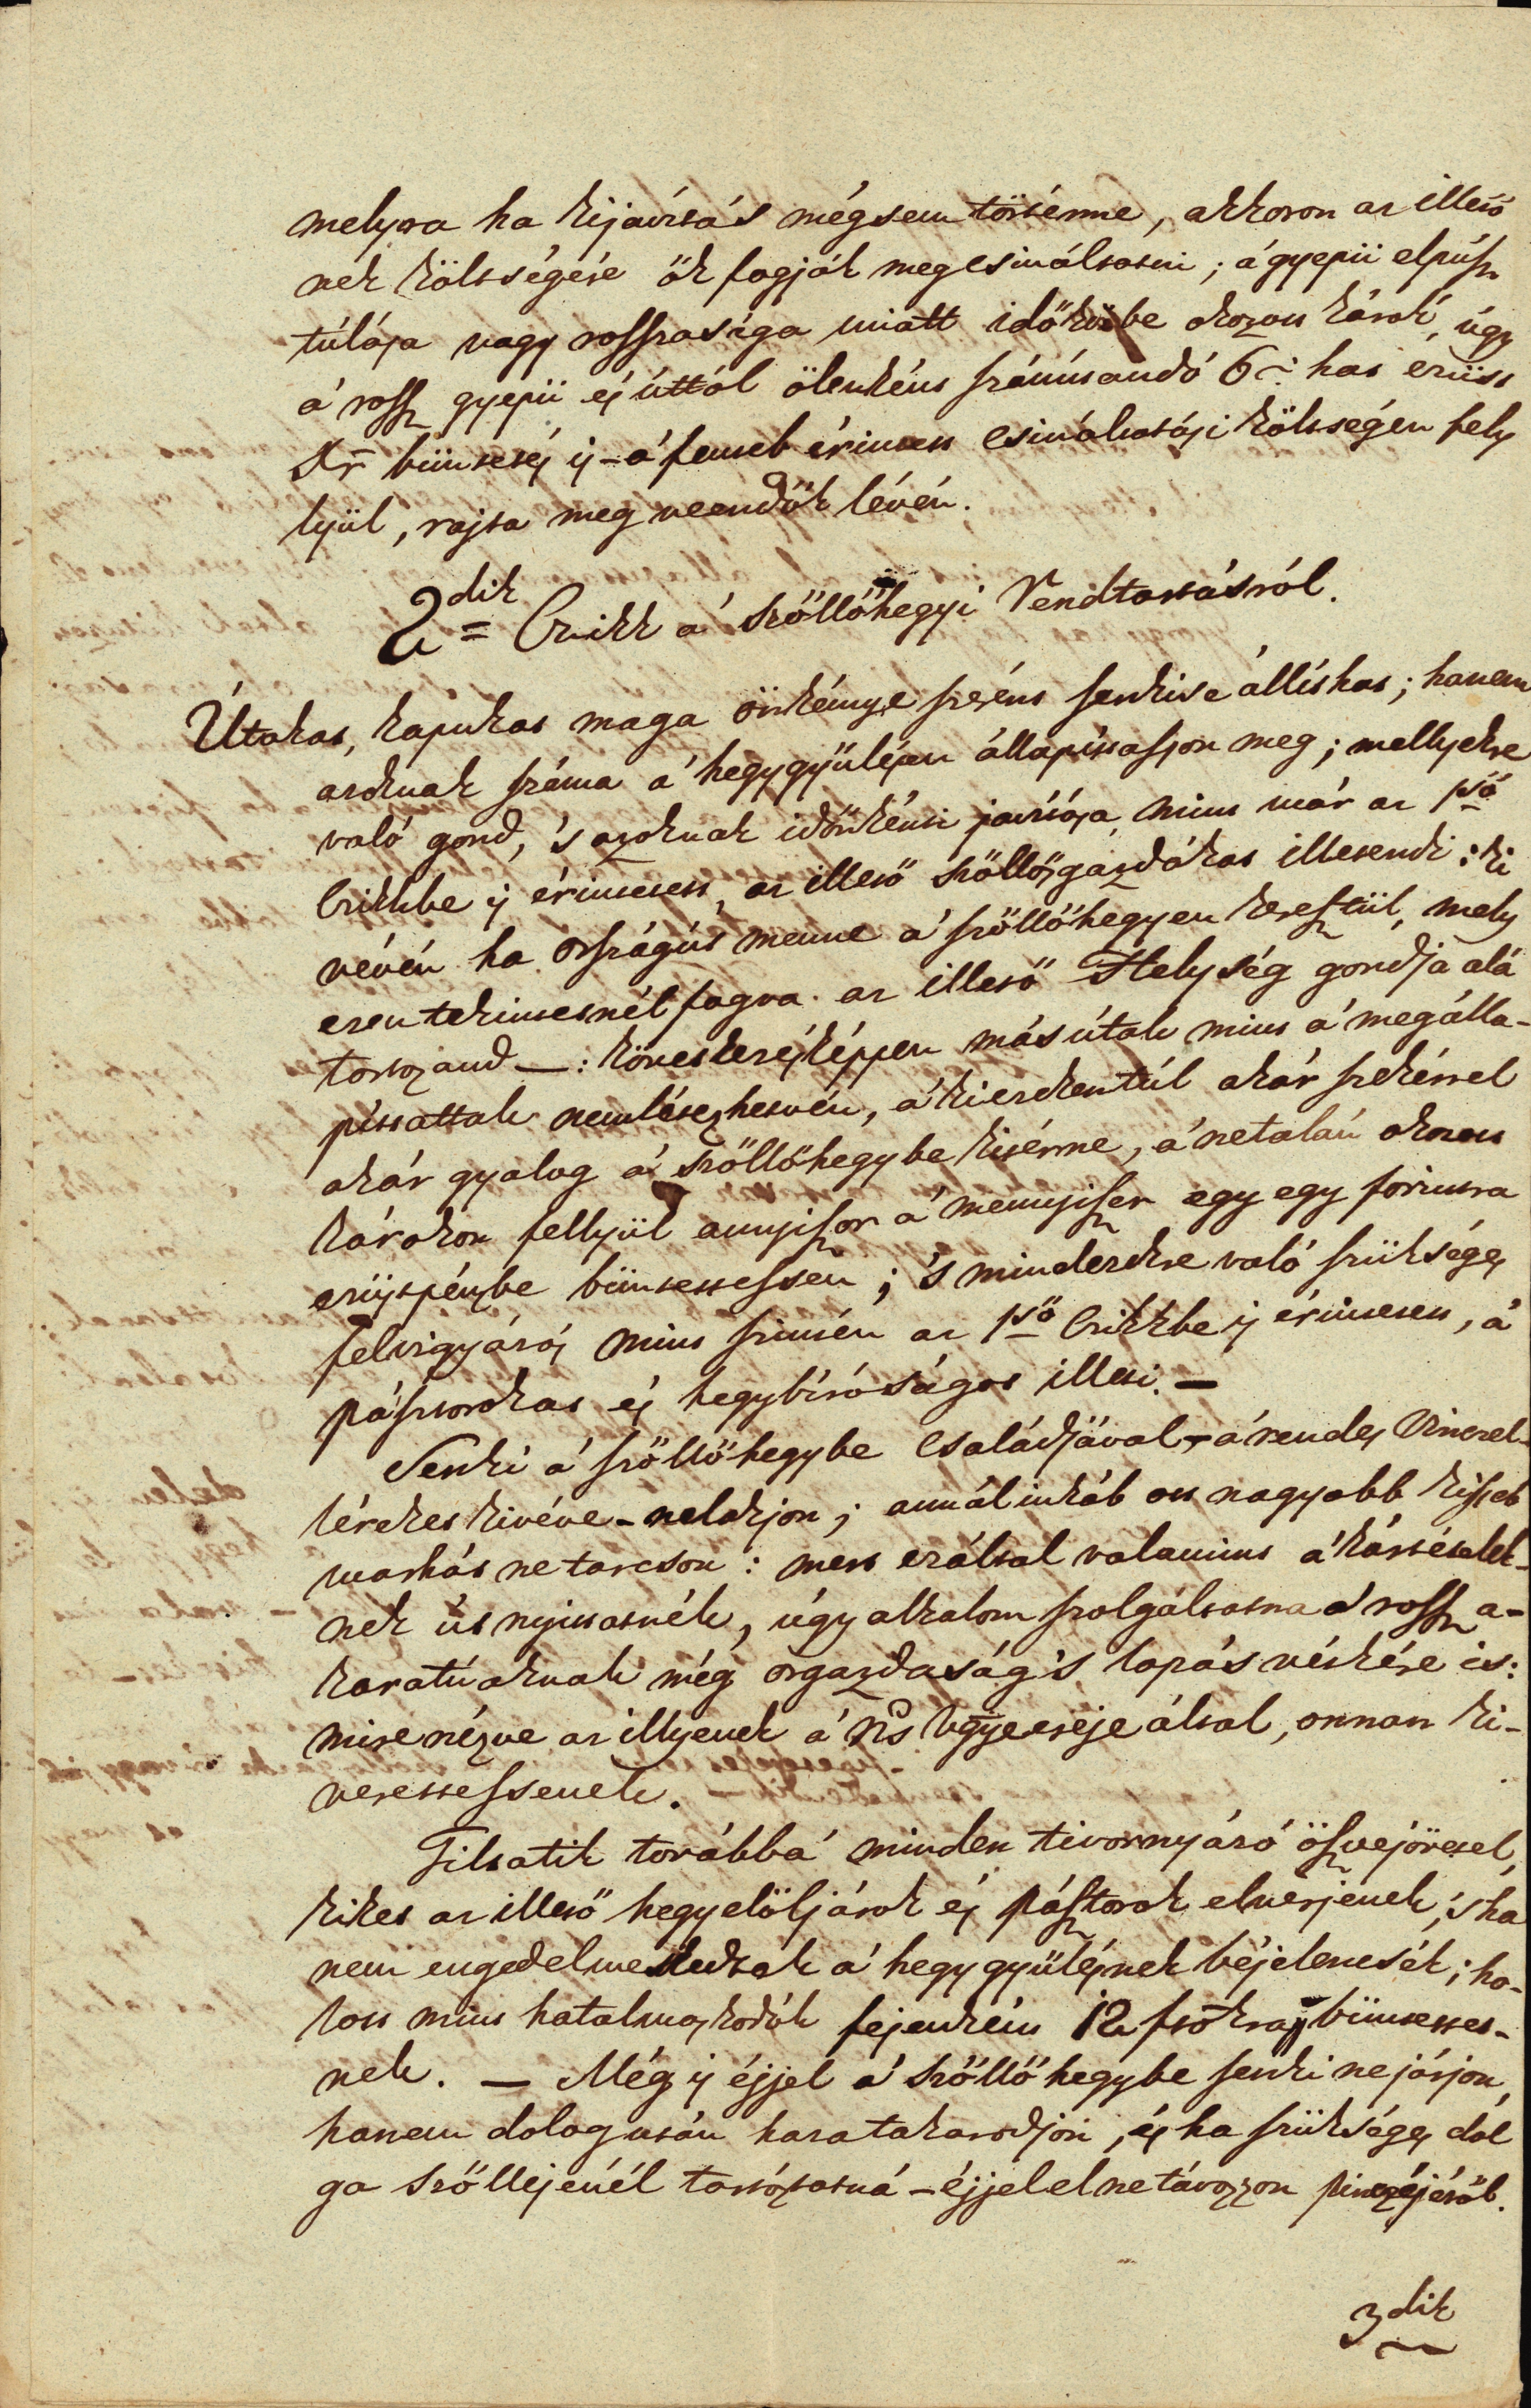 melyra ha kijavítás mégsem történne, akkoron az illető
nek költségére ők fogják megcsináltatni; á gyepü elpúsz
túlása vagy rosszasága miatt időközbe okozott károk, úgy
á rossz gyepü és úttól ölenként számítandó 6 : hat ezüst
Xr büntetés is – á fenneb érintett csináltatási költségen fely
lyül, rajta meg veendők lévén.
2dik = Czikk á szőllőhegyi Rendtartásról.
Útakat, kapukat maga önkénye szerént senki se állíthat; hanem
azoknak száma á hegygyűlésen állapíttasson meg; mellyekre
való gond, 's azoknak időnkénti javítása, mint már az 1ső
Czikkbe is érintetett, az illető szőllősgazdákat illetendi : ki
vévén ha országút menne á szőllőhegyen keresztűl, mely
ezen tekintetnél fogva az illető Helység gondja alá
tartozand — : következésképpen más útak mint á megálla-
píttattak nem létezhetvén, á ki ezekentúl akár szekérrel
akár gyalog á szőllőhegybe kitérne, á netalán okozott
károkon fellyül annyiszor á mennyiszer egy egy forintra
ezüstpénzbe büntettessen ; 's mindezekre való szükséges
felvigyázás mint szintén az 1ső Czikkbe is érintetett, á
pásztorokat és hegybíróságot illeti. —
Senki á szőllőhegybe családjával – á rendes Vinczel-
léreket kivéve – ne lakjon ; annál inkáb ott nagyobb kisseb
marhát ne tartson : mert ezáltal valamint á kártételek-
nek út nyittatnék, úgy alkalom szolgáltatna á rossz a-
karatúaknak még orgazdaság 's lopás vétkére is :
mire nézve az illyenek á Ns Vgye ereje által, onnan ki-
verettessenek.
Tiltatik továbbá minden tivornyázó öszvejövetel,
kiket az illető hegyelöljárok és pásztorok elverjenek ; 's ha
nem engedelmeskednek á hegygyűlésnek béjelentsék ; ho-
lott mint hatalmaskodók fejenként 12 ftokra büntettet-
nek. — Még is éjjel á szőllőhegybe senki ne járjon,
hanem dolog után haza takarodjon, és ha szükséges dol
ga szőllejénél tartóztatná – éjjel el ne távozzon pinczéjéről.
3dik